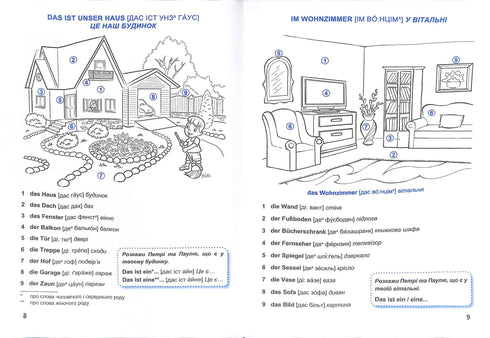 DAS IST UNSER HAUS [ДАС ІСТ УНЗᵃ ГА́УС]
ЦЕ НАШ БУДИНОК
1 das Haus [дас га́ус] будинок
2 das Dach [дас дах] дах
3 das Fenster [дас фе́нстᵃ] вікно
4 der Balkon [деᵃ балько́н] балкон
5 die Tür [ді: тю:ᵃ] двері
6 die Treppe [ді: тре́пе] сходи
7 der Hof [деᵃ го:ф] подвір'я
8 die Garage [ді: ґара́же] гараж
9 der Zaun [деᵃ ца́ун] паркан
Розкажи Петрі та Паулю, що є у
твоєму будинку.
Das ist ein*... [дас іст айн] Це є...
Das ist eine**... [дас іст а́йне] Це є...
* про слова чоловічого і середнього роду
** про слова жіночого роду
8
IM WOHNZIMMER [ІМ ВО́:НЦІМᵃ] У ВІТАЛЬНІ
das Wohnzimmer [дас во́:нцімᵃ] вітальня
1 die Wand [ді: вант] стіна
2 der Fußboden [деᵃ фу́сбоден] підлога
3 der Bücherschrank [деᵃ бю́хашранк] книжкова шафа
4 der Fernseher [деᵃ фе́рнзеᵃ] телевізор
5 der Spiegel [деᵃ шпі́:ґель] дзеркало
6 der Sessel [деᵃ зе́сель] крісло
7 die Vase [ді: ва́зе] ваза
8 das Sofa [дас зо́фа] диван
9 das Bild [дас більт] картина
Розкажи Петрі та Паулю, що є у
твоїй вітальні.
Das ist ein / eine...
9